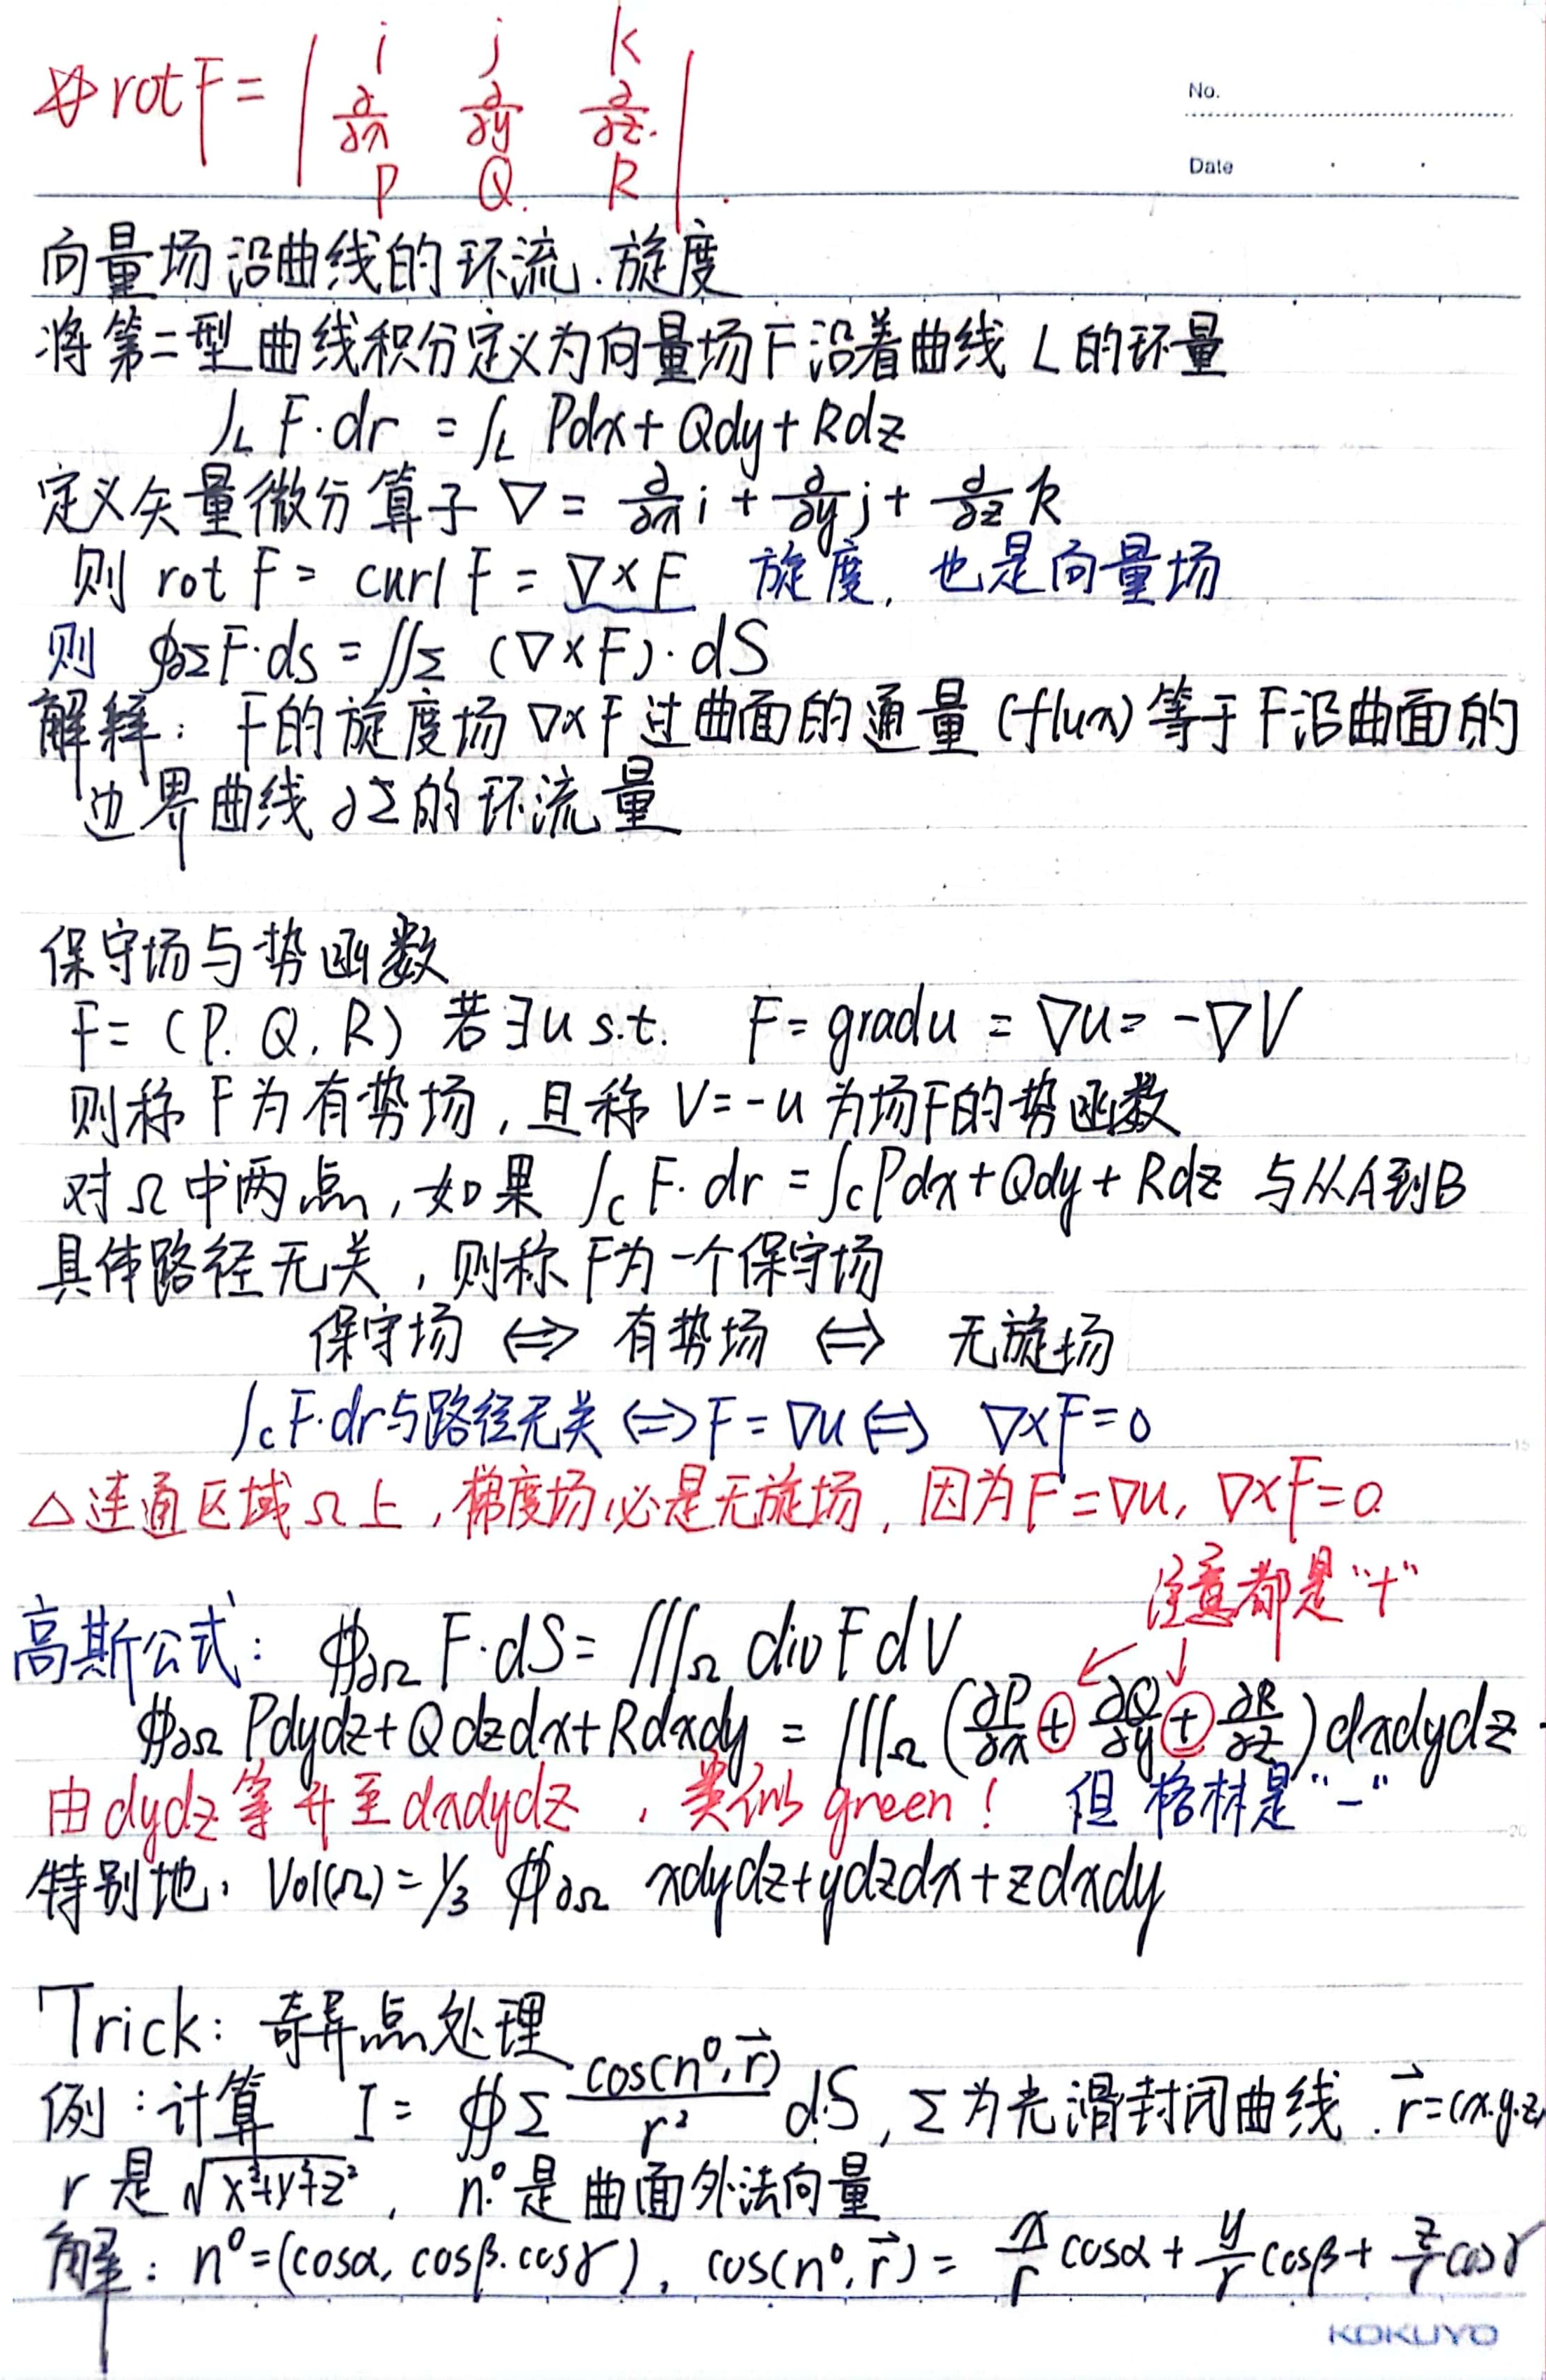 No.
Date
☆ rot F = | i j k
∂/∂x ∂/∂y ∂/∂z
P Q R |
向量场沿曲线的环流.旋度
将第二型曲线积分定义为向量场F沿着曲线 L 的环量
∫L F·dr = ∫L Pdx+Qdy+Rdz
定义矢量微分算子 ∇ = ∂/∂x i + ∂/∂y j + ∂/∂z k
则 rot F = curl F = ∇×F 旋度, 也是向量场
则 ∮∂Σ F·ds = ∬Σ (∇×F)·dS
解释: F的旋度场 ∇×F 过曲面的通量 (flux) 等于 F沿曲面的
边界曲线 ∂Σ的环流量
保守场与势函数
F = (P, Q, R) 若∃u s.t. F = gradu = ∇u = -∇V
则称 F 为有势场, 且称 V=-u 为场F的势函数
对Ω中两点, 如果 ∫C F·dr = ∫C Pdx+Qdy+Rdz 与从A到B
具体路径无关, 则称F为一个保守场
保守场 ⟺ 有势场 ⟺ 无旋场
∫C F·dr与路径无关 ⟺ F = ∇u ⟺ ∇×F=0
△连通区域Ω上, 梯度场必是无旋场, 因为F=∇u, ∇×F=0
注意都是"+"
高斯公式: ∯∂Ω F·dS = ∭Ω div F dV
∯∂Ω Pdydz+Qdzdx+Rdxdy = ∭Ω (∂P/∂x + ∂Q/∂y + ∂R/∂z) dxdydz
由dydz等升至dxdydz, 类似green! 但格林是"-"
特别地, Vol(Ω) = 1/3 ∯∂Ω xdydz+ydzdx+zdxdy
Trick: 奇异点处理
例: 计算 I = ∯Σ cos(n⁰,r⃗)/r² dS, Σ为光滑封闭曲线. r⃗=(x.y.z)
r 是 √x²+y²+z², n⁰是曲面外法向量
解: n⁰=(cosα, cosβ.cosγ), cos(n⁰,r⃗) = x/r cosα + y/r cosβ + z/r cosγ
KOKUYO